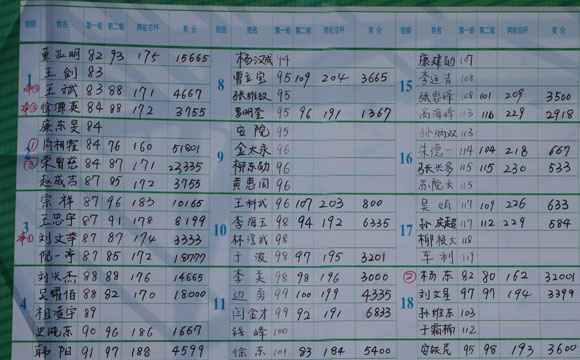 组别 姓名 第一轮 第二轮 两轮总杆 奖分
1
董亚明 82 93 175 15665
王剑 83
王斌 83 88 171 4667
徐源英 84 88 172 3755
2
廉东昊 84
① 84 76 160 51801
③ 84 87 171 23335
赵成吉 87 85 172 3755
3
宗祥 87 96 183 10165
王忠宇 87 91 178 8199
刘文革 87 87 174 3333
87 85 172 18777
4
刘兴杰 88 88 176 14665
吴耀伯 88 82 170 18000
祖凌宇 89
90 96 186 1667
韩阳 91 97 188 4599
组别 姓名 第一轮 第二轮 两轮总杆 奖分
8
杨汉成 94
曹立宝 95 109 204 3665
张维 95
易明奎 95 96 191 1367
9
安院 95
金太永 96
柳东劲 96
黄思国 96
10
王科武 96 107 203 800
李海玉 98 94 192 6335
林泽武 98
于波 98 97 195 3201
11
李英 98 98 196 3000
边勇 99 100 199 4335
闫金才 99 92 191 6833
钱峰 100
徐东 101 83 184 5400
组别 姓名 第一轮 第二轮 两轮总杆 奖分
15
康建勋 107
李运吉 108
108 101 209 3500
高海峰 113 116 229 2918
16
孙炳双 113
朱德一 114 104 218 667
张长多 115 115 230 533
115
17
吴 117 109 226 633
孙庆超 117 112 229 584
柳根太 118
车利 117
18
② 杨东 82 80 162 32001
刘文星 97 97 194 3399
孙维东 103
于霜楠 112
安铁民 95 98 193 3600